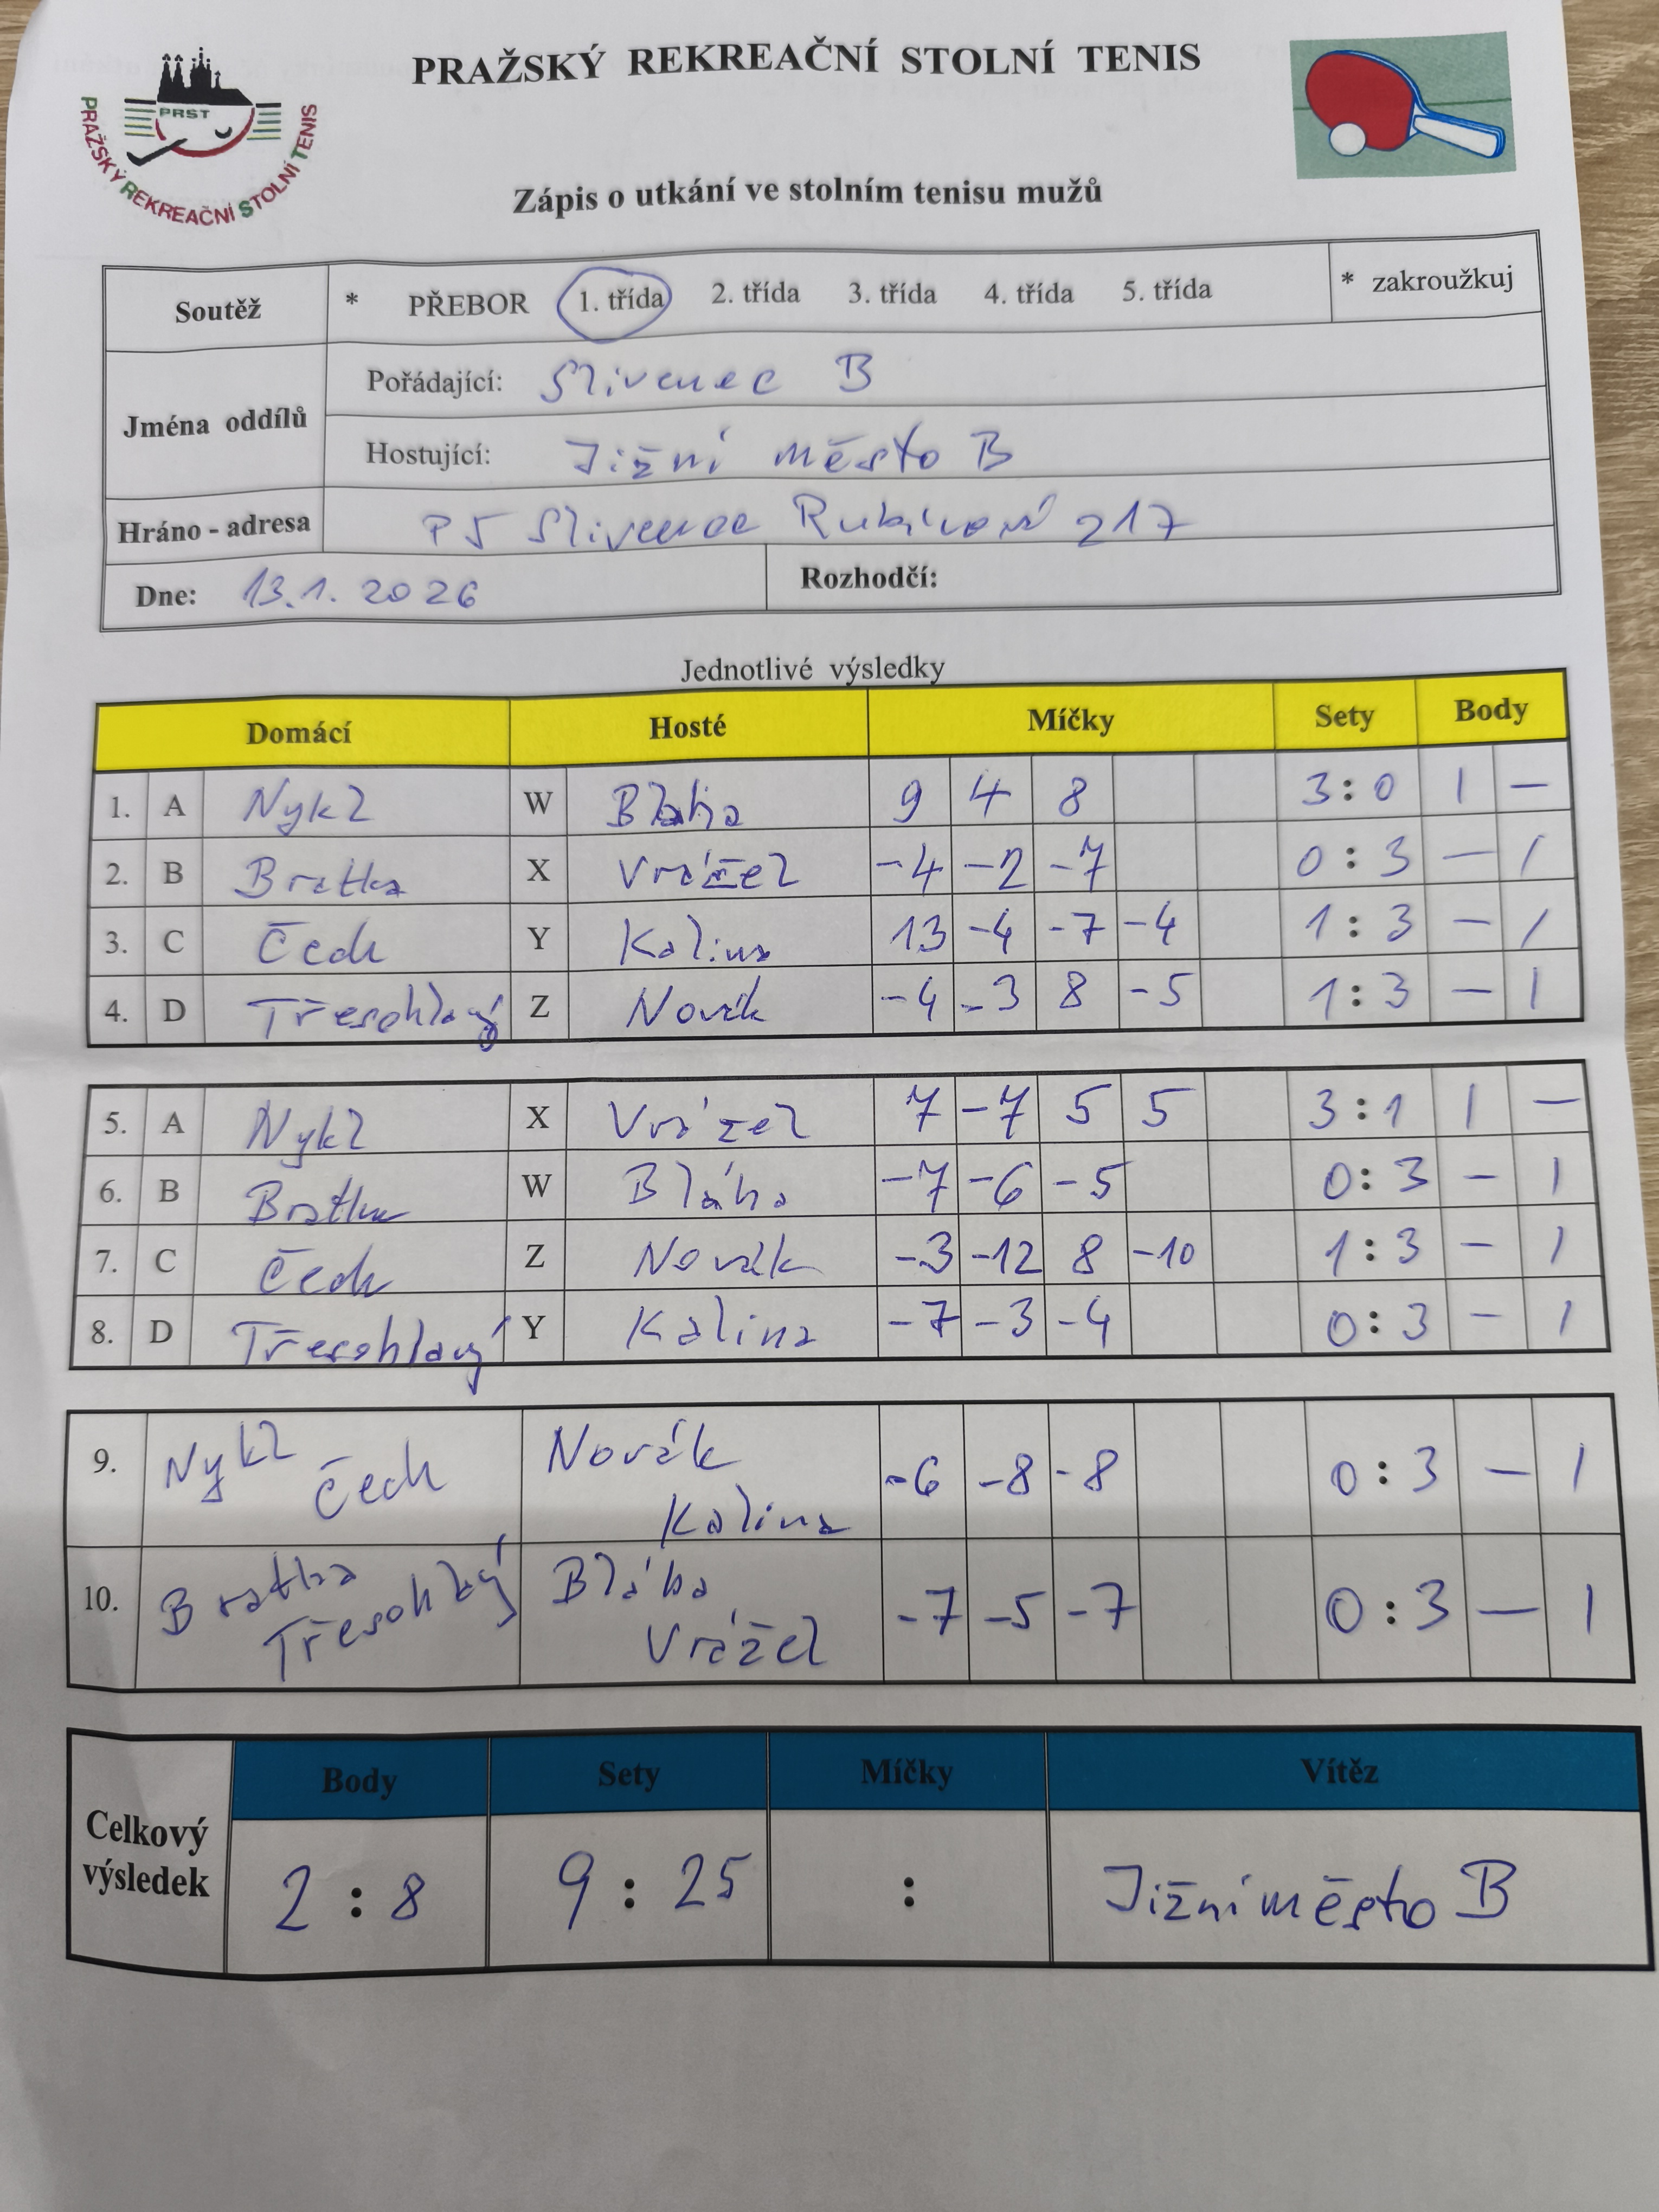 PRAŽSKÝ REKREAČNÍ STOLNÍ TENIS
PRST
PRAŽSKÝ REKREAČNÍ STOLNÍ TENIS
Zápis o utkání ve stolním tenisu mužů
Soutěž * PŘEBOR 1. třída 2. třída 3. třída 4. třída 5. třída * zakroužkuj
Jména oddílů
Pořádající: Slivenec B
Hostující: Jižní město B
Hráno - adresa P5 Slivenec Rubínová 217
Dne: 13.1. 2026 Rozhodčí:
Jednotlivé výsledky
Domácí Hosté Míčky Sety Body
1. A Nykl W Bláha 9 4 8 3:0 1 –
2. B Bratka X Vrážel -4 -2 -7 0:3 – 1
3. C Čech Y Kalina 13 -4 -7 -4 1:3 – 1
4. D Třesohlavý Z Novák -4 -3 8 -5 1:3 – 1
5. A Nykl X Vrážel 7 -7 5 5 3:1 1 –
6. B Bratka W Bláha -7 -6 -5 0:3 – 1
7. C Čech Z Novák -3 -12 8 -10 1:3 – 1
8. D Třesohlavý Y Kalina -7 -3 -4 0:3 – 1
9. Nykl Čech Novák Kalina -6 -8 -8 0:3 – 1
10. Bratka Třesohlavý Bláha Vrážel -7 -5 -7 0:3 – 1
Body Sety Míčky Vítěz
Celkový výsledek 2:8 9:25 : Jižní město B